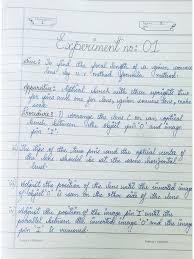 Experiment no: 01
Aim: To find the focal length of a given convex
lens by u.v. method (formula method)
Apparatus: Optical bench with three uprights two
for pins and one for lens, given convex lens, metre
scale.
Procedure: i) Arrange the lens L on an optical
bench between the object pin "O" and image
pin "I".
ii) The tips of the two pins and the optical center of
the lens should be at the same horizontal
level.
iii) Adjust the position of the lens until the inverted image
of object "O" is seen on the other side of the lens
iv) Adjust the position of the image pin I until the
parallax between the inverted image "O" and the image
pin "I" is removed.